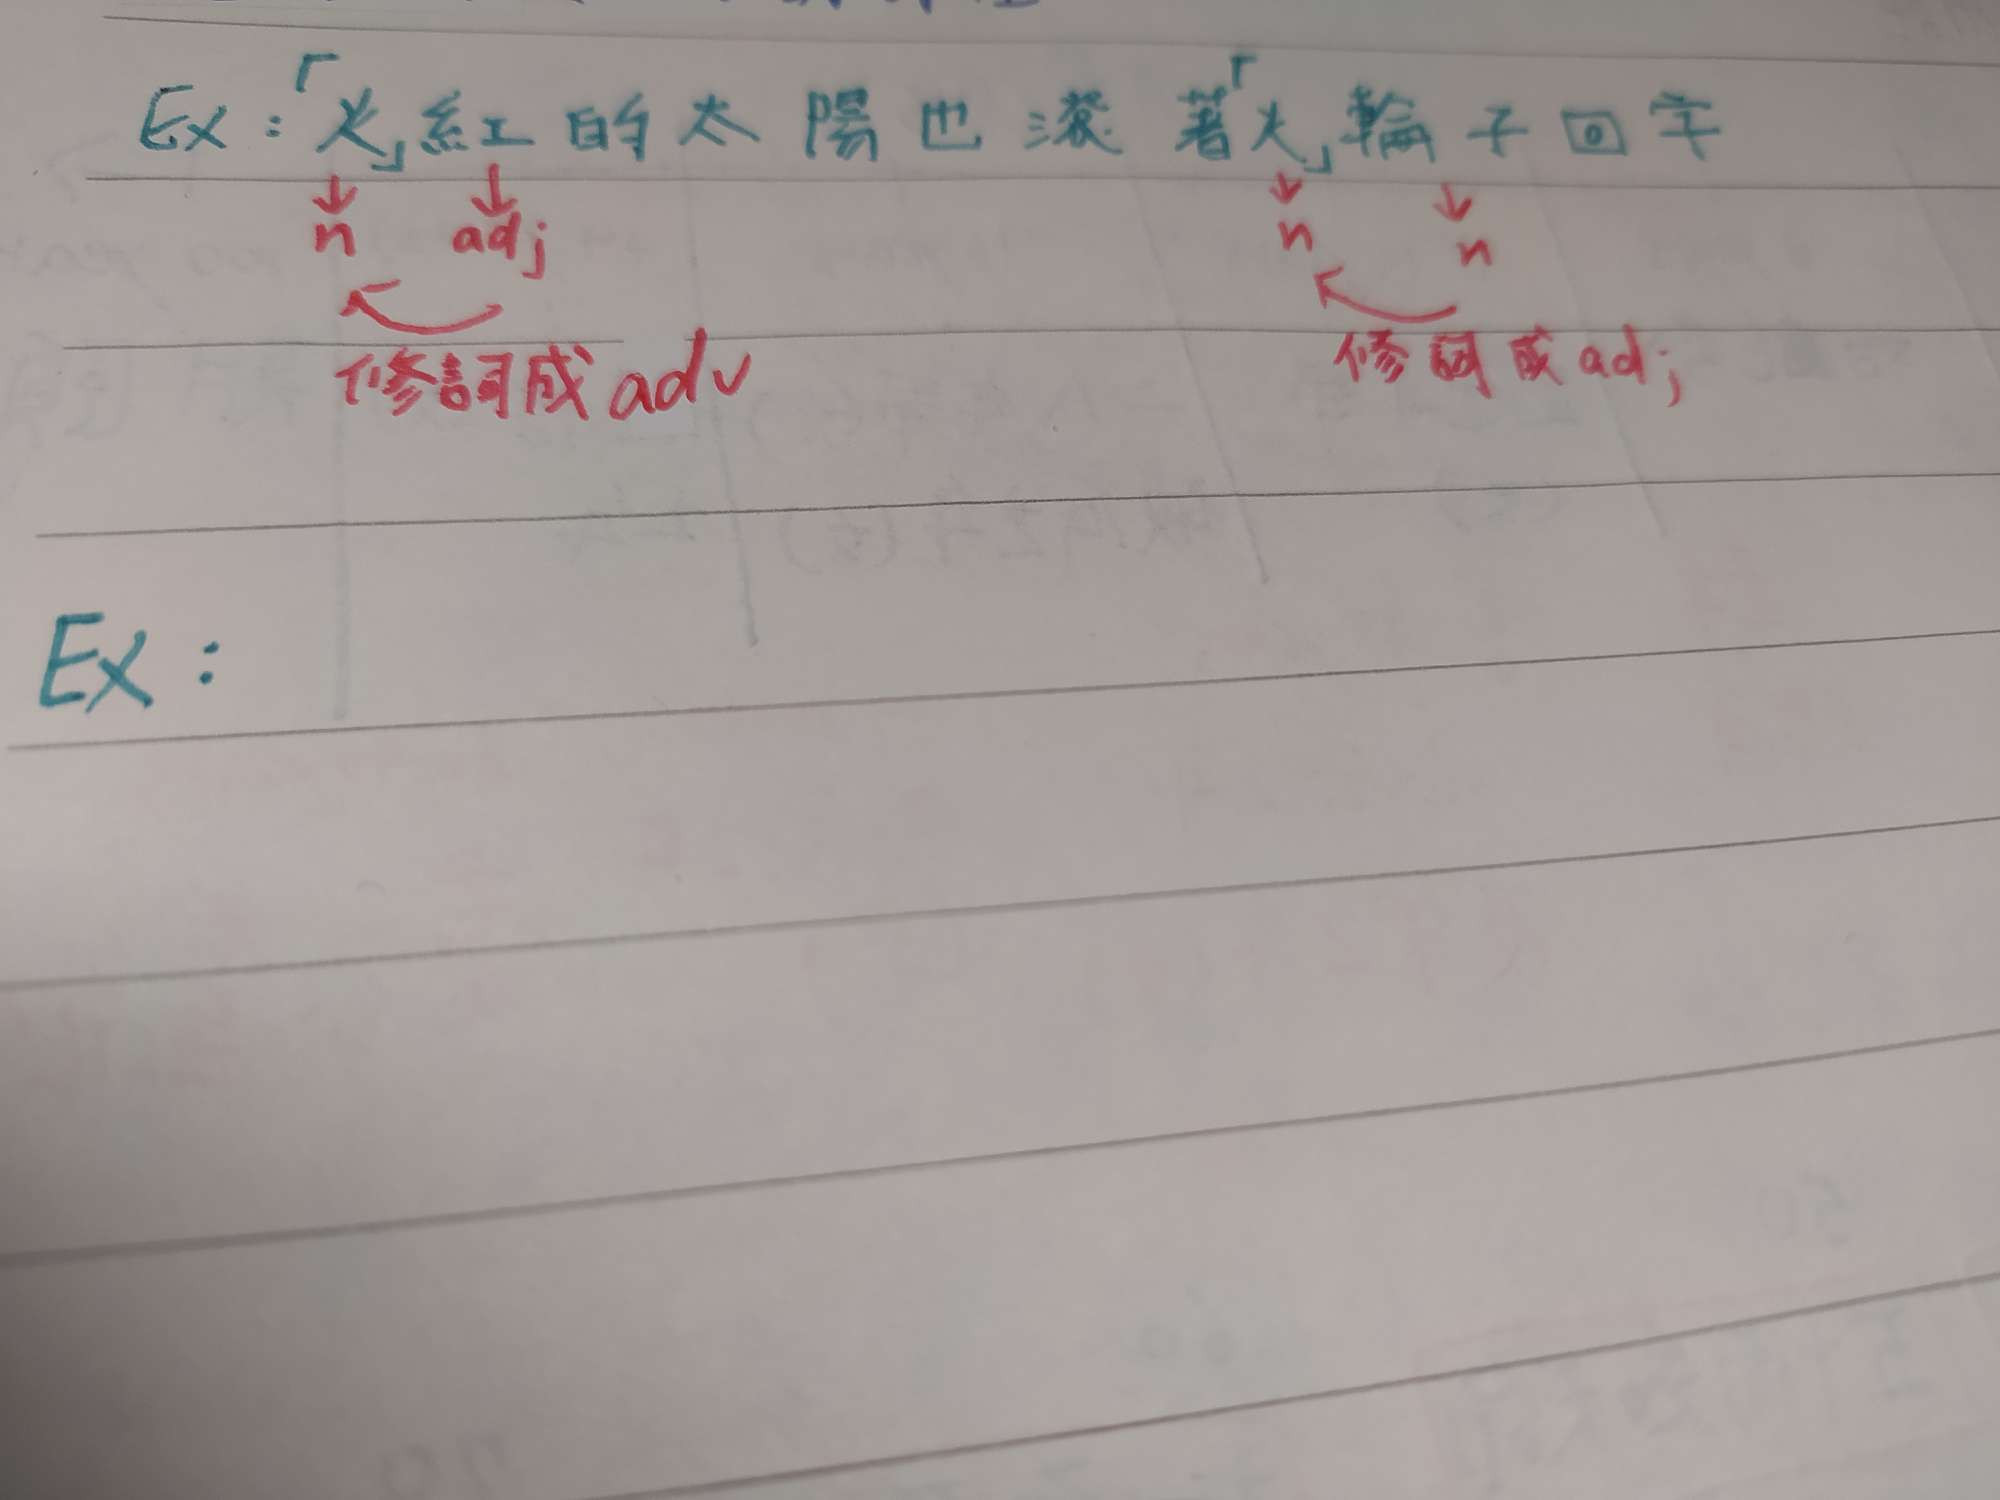 Ex：「火」紅的太陽也滾著「火」輪子回字
n adj n n
修詞成adv 修詞成adj
Ex：